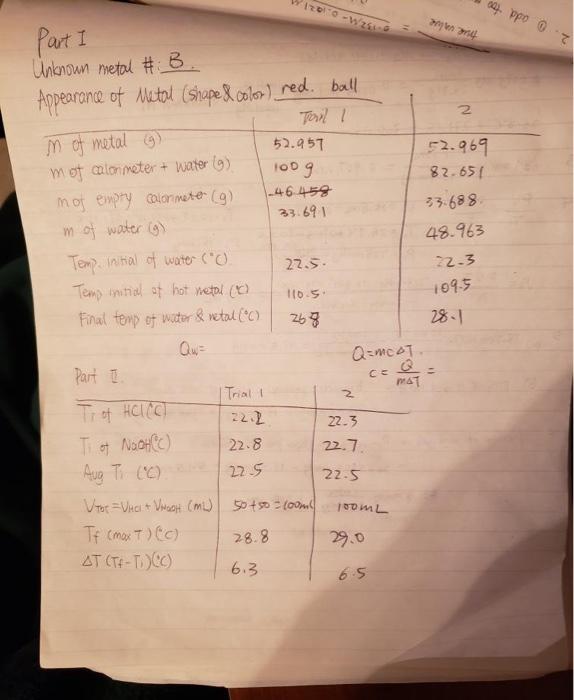 2. ① add too
true value =
0.132M - 0.1021
Part I
Unknown metal #: B.
Appearance of Metal (shape & color) red. ball
Trail 1 2
m of metal (g) 52.957 52.969
m of calorimeter + water (g) 100g 82.651
m of empty calorimeter (g) 46.458 33.691 33.688
m of water (g) 48.963
Temp. initial of water (°C) 22.5. 22.3
Temp initial of hot metal (°C) 110.5. 109.5
Final temp of water & metal (°C) 26.8 28.1
Qw= Q=mcΔT.
c = Q/mΔT =
Part II.
Trial 1 2
Ti of HCl (°C) 22.2 22.3
Ti of NaOH (°C) 22.8 22.7.
Aug Ti (°C) 22.5 22.5
VTOT = VHCl + VNaOH (mL) 50+50=100mL 100mL
Tf (max T) (°C) 28.8 29.0
ΔT (Tf-Ti) (°C) 6.3 6.5